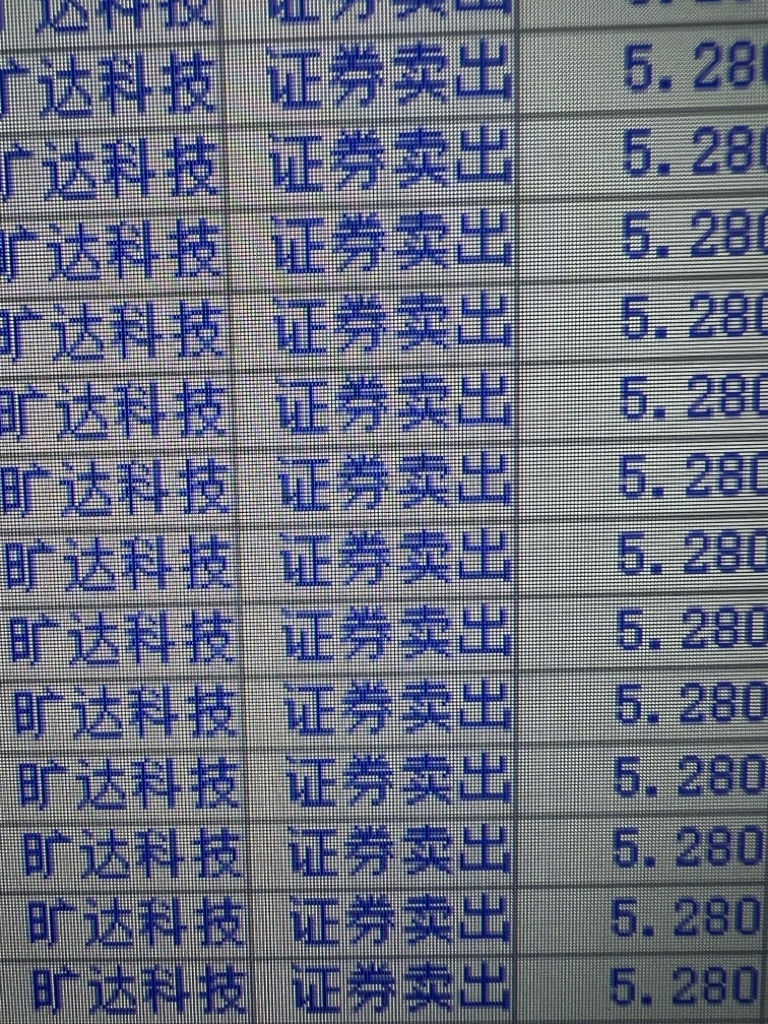 达科技 证券卖出
旷达科技 证券卖出 5.280
旷达科技 证券卖出 5.280
旷达科技 证券卖出 5.280
旷达科技 证券卖出 5.280
旷达科技 证券卖出 5.280
旷达科技 证券卖出 5.280
旷达科技 证券卖出 5.280
旷达科技 证券卖出 5.280
旷达科技 证券卖出 5.280
旷达科技 证券卖出 5.280
旷达科技 证券卖出 5.280
旷达科技 证券卖出 5.280
旷达科技 证券卖出 5.280